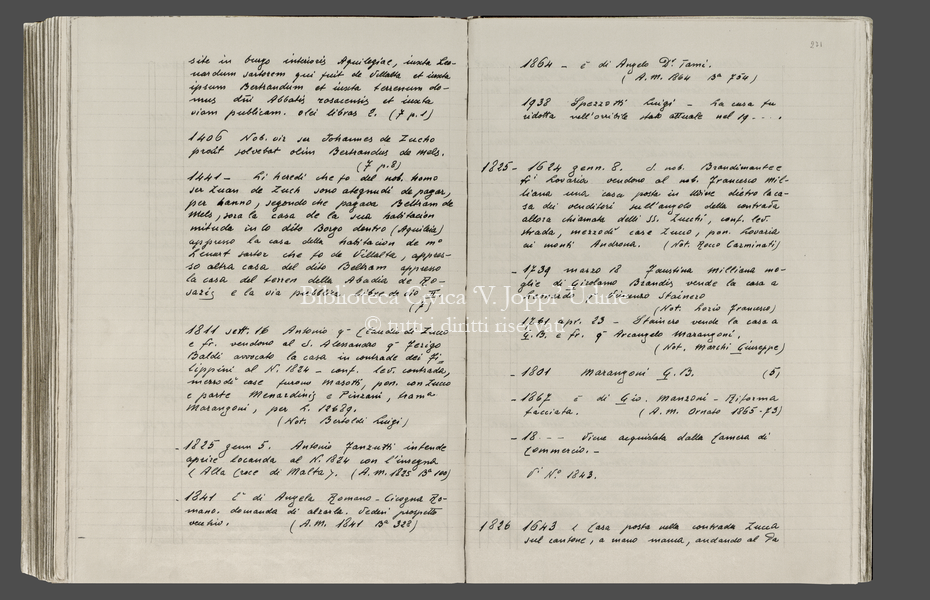 site in burgo interioris Aquilegiae, iuxta Leo-
nardum sartorem qui fuit de Villalta et iuxta
ipsum Bertrandum et iuxta terrenum do-
mus dni Abbatis rosacensis et iuxta
viam publicam. olei libras 2. (7 p.1)
1406 Nob. vir ser Johannes de Zucho
prout solvebat olim Bertrandus de Mels.
(7 p.8)
1441 - Li heredi che fo del nob. homo
ser Zuan de Zuch sono ategnudi de pagar,
per hanno, segondo che pagava Beltram de
Mels, sora la casa de la sua habitacion
mituda in lo dito Borgo dentro (Aquileia)
appresso la casa della habitacion de m°
Lenart sartor che fo de Villalta, appres-
so altra casa del dito Beltram appresso
la casa del terren della Abadia de Ro-
sazis e la via publica. libre de oio II
(7)
1811 sett. 16 Antonio q Claudio di Zucco
e fr. vendono al S. Alessandro q Ferigo
Baldi avvocato la casa in contrada dei Fi-
lippini al N. 1824 - conf. lev. contrada,
mezzodì case furono Masotti, pon. con Zucco
e parte Menardinis e Pinzani, tram.a
Marangoni, per L. 12689.
(Not. Bertoldi Luigi)
- 1825 genn 5. Antonio Zanzutti intende
aprire locanda al N. 1824 con l'insegna
(Alla Croce di Malta). (A.M. 1825 Ba 100)
- 1841 È di Angela Romano - Cicogna Ro-
mano. domanda di alzarla. Vederi prospetto
vecchio. (A.M. 1841 Ba 328)
277
1864 - è di Angelo Dr. Tami.
(A.M. 1864 Ba 754)
1938 Spezzotti Luigi - La casa fu
ridotta nell'orribile stato attuale nel 19 - - - .
1825 - 1624 genn. 8. I nob. Brandimante e
fr. Lovaria vendono al nob. Francesco Mil-
liana una casa posta in Udine dietro la ca-
sa dei venditori sull'angolo della contrada
allora chiamata delli SS. Zucchi, conf. lev.
strada, mezzodì case Zucco, pon. Lovaria
ai monti Androna. (Not. Rocco Carminati)
- 1739 marzo 18 Faustina Milliana mo-
glie di Girolamo Brandis vende la casa a
Stainero
(Not. Lorio Francesco)
1761 apr. 23 - Stainero vende la casa a
G.B. e fr. q Arcangelo Marangoni.
(Not. Marchi Giuseppe)
- 1801 Marangoni G.B. (5)
- 1867 è di Gio. Manzoni - Riforma
facciata. (A.M. Ornato 1865-73)
- 18 - - - Viene acquistata dalla Camera di
Commercio. -
V. N° 1843.
1826 1643 e Casa posta nella contrada Zucca
sul cantone, a mano manca, andando al Pa
Biblioteca Civica 'V. Joppi' Udine
© tutti i diritti riservati